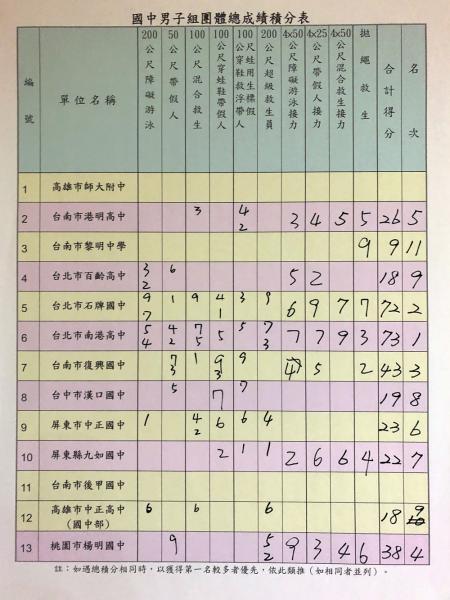 國中男子組團體總成績積分表
編號 單位名稱 200公尺障礙游泳 50公尺帶假人 100公尺混合救生 100公尺穿蛙鞋帶假人 100公尺穿蛙鞋用浮標救生帶假人 200公尺超級救生員 4x50公尺障礙游泳接力 4x25公尺帶假人接力 4x50公尺混合救生接力 拋繩救生 合計得分 名次
1 高雄市師大附中
2 台南市港明高中 3 4 2 3 4 5 5 26 5
3 台南市黎明中學 9 9 11
4 台北市百齡高中 3 2 6 5 2 18 9
5 台北市石牌國中 9 7 1 9 4 1 3 9 6 9 7 7 72 2
6 台北市南港高中 5 4 4 2 7 5 5 5 7 3 7 7 9 3 73 1
7 台南市復興國中 7 3 1 9 3 9 4 5 2 43 3
8 台中市漢口國中 5 7 7 19 8
9 屏東市中正國中 1 4 2 6 6 4 23 6
10 屏東縣九如國中 2 1 1 2 6 6 4 22 7
11 台南市後甲國中
12 高雄市中正高中 6 6 6 18 9
(國中部)
13 桃園市楊明國中 9 5 2 9 3 4 6 38 4
註：如遇總積分相同時，以獲得第一名較多者優先，依此類推（如相同者並列）。